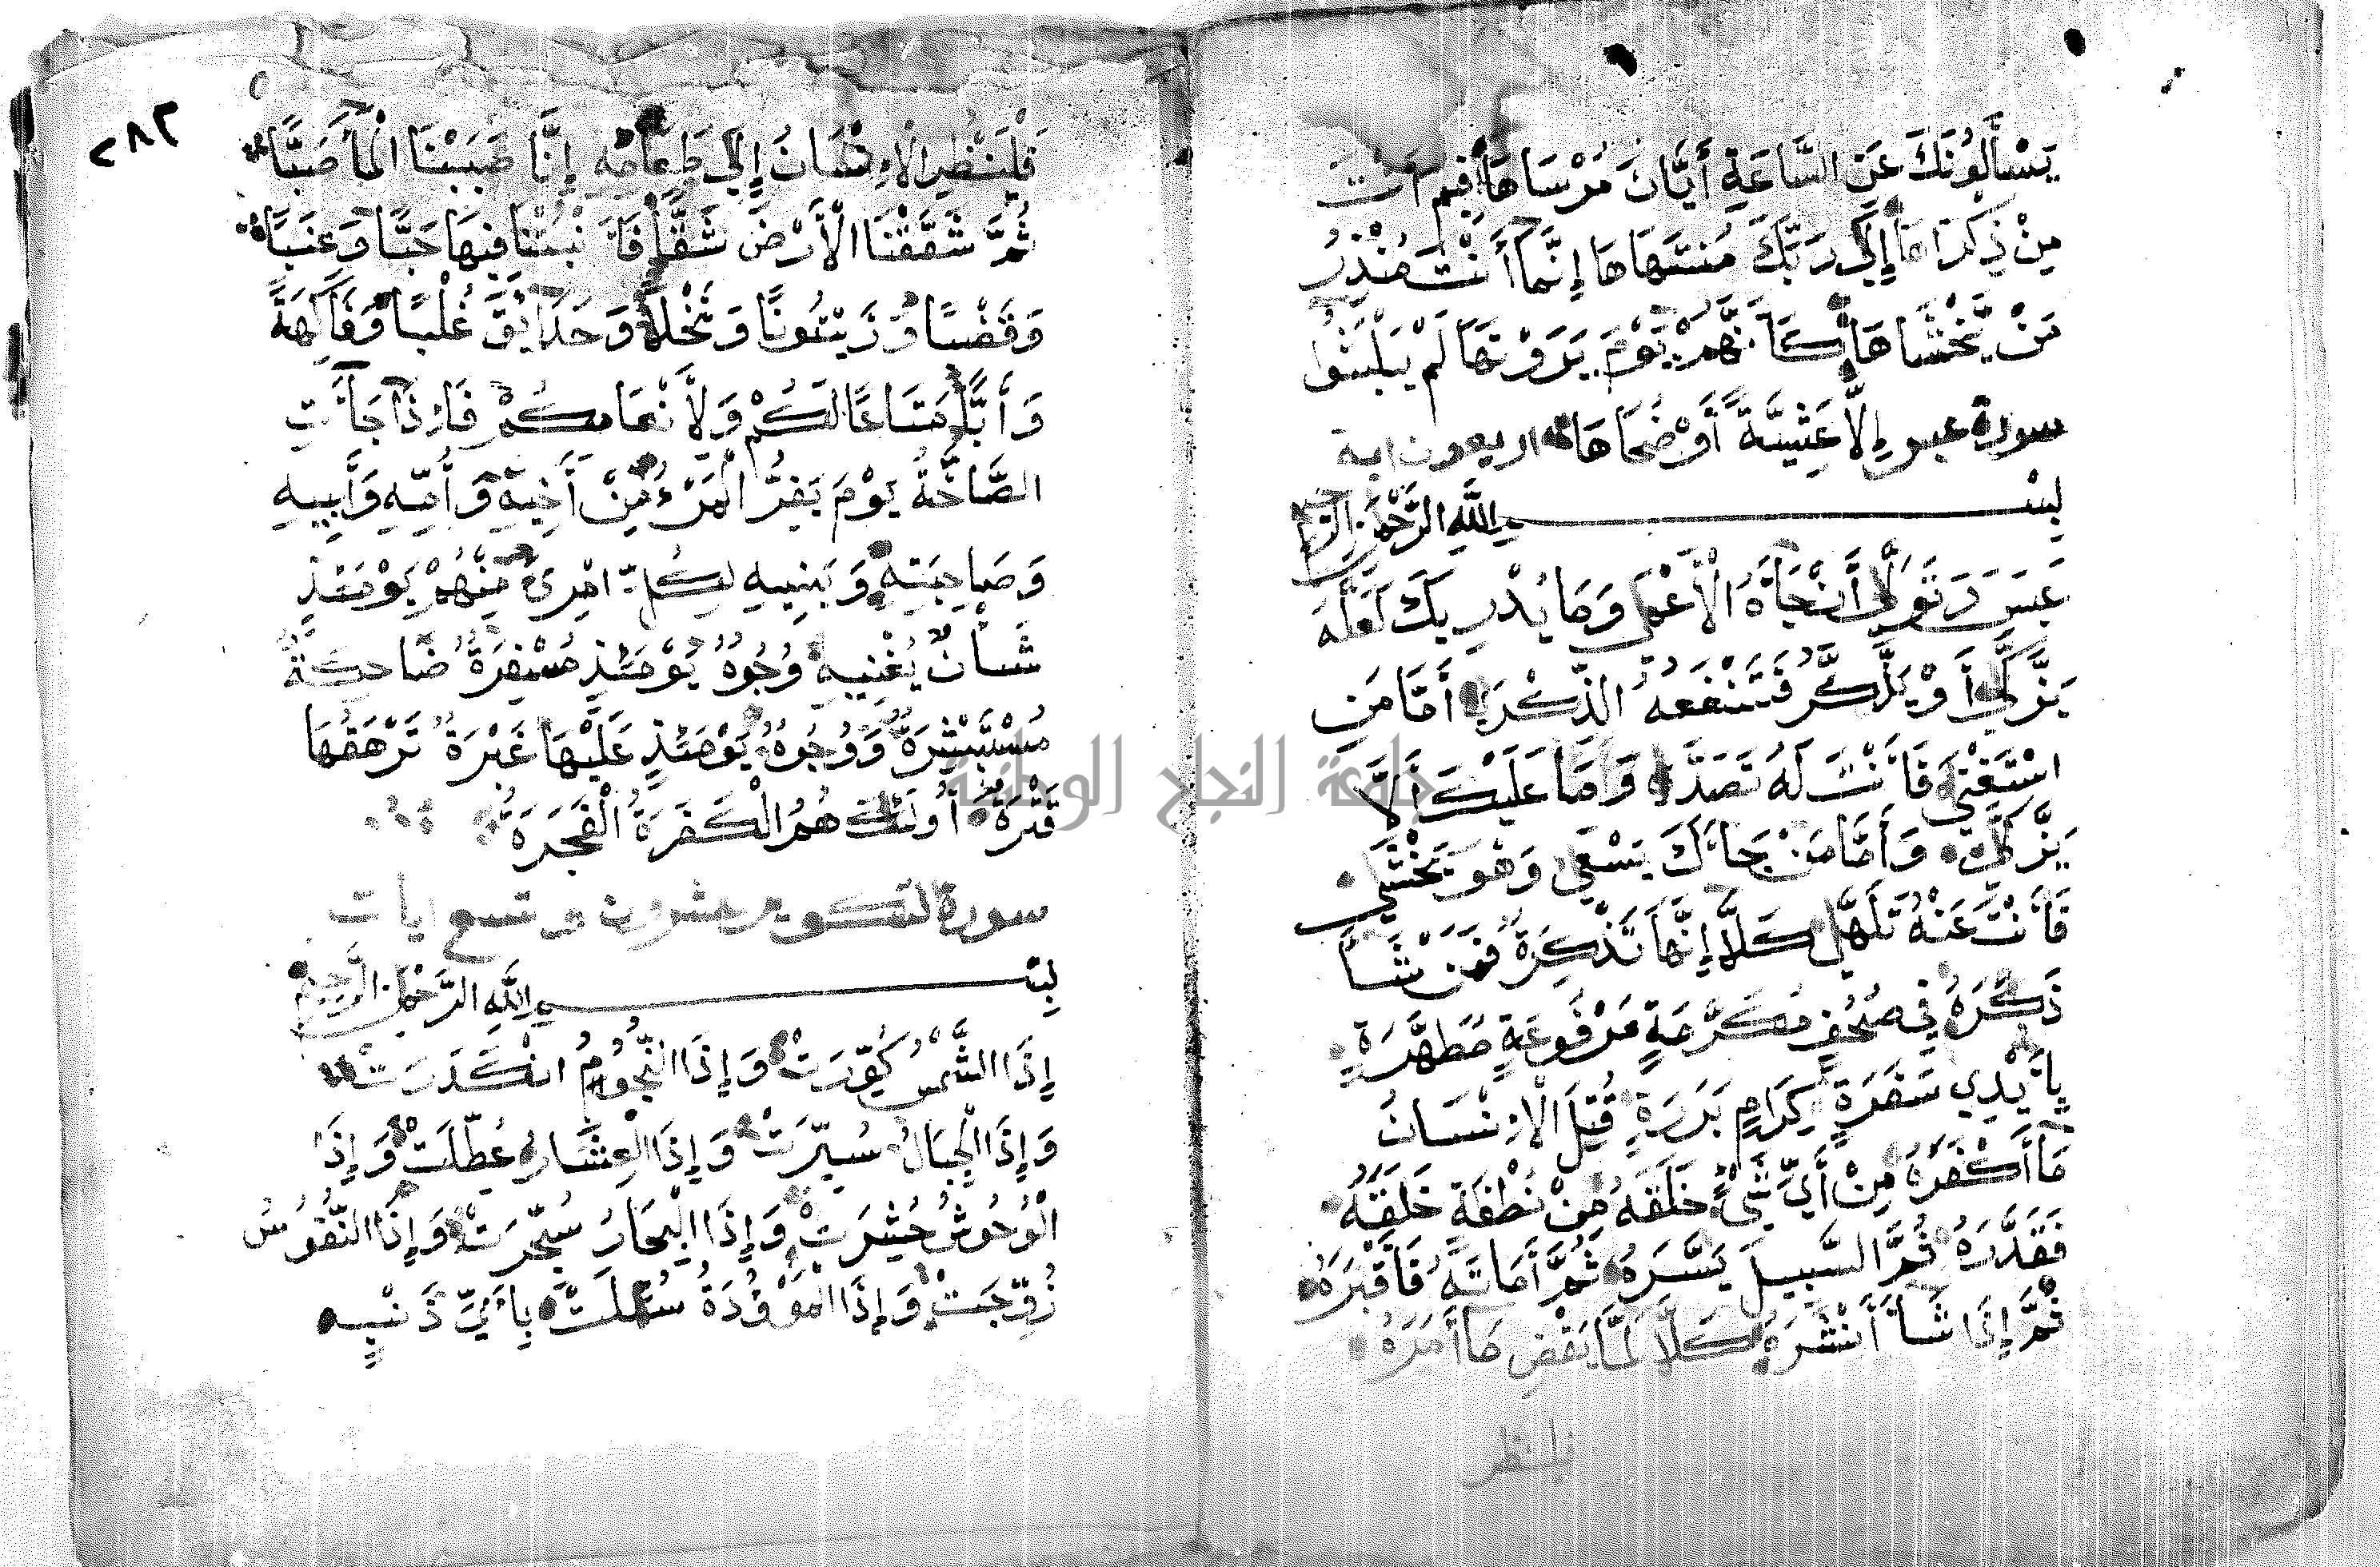 يَسْأَلُونَكَ عَنِ السَّاعَةِ أَيَّانَ مُرْسَاهَا فِيمَ أَنْتَ
مِنْ ذِكْرَاهَا إِلَى رَبِّكَ مُنْتَهَاهَا إِنَّمَا أَنْتَ مُنْذِرُ
مَنْ يَخْشَاهَا كَأَنَّهُمْ يَوْمَ يَرَوْنَهَا لَمْ يَلْبَثُوا
سورة عبس إِلَّا عَشِيَّةً أَوْ ضُحَاهَا اربعون اية
بِسْمِ اللَّهِ الرَّحْمَنِ الرَّحِيمِ
عَبَسَ وَتَوَلَّى أَنْ جَآءَهُ الْأَعْمَى وَمَا يُدْرِيكَ لَعَلَّهُ
يَزَّكَّى أَوْ يَذَّكَّرُ فَتَنْفَعَهُ الذِّكْرَى أَمَّا مَنِ
اسْتَغْنَى فَأَنْتَ لَهُ تَصَدَّى وَمَا عَلَيْكَ أَلَّا
يَزَّكَّى وَأَمَّا مَنْ جَاءَكَ يَسْعَى وَهُوَ يَخْشَى
فَأَنْتَ عَنْهُ تَلَهَّى كَلَّا إِنَّهَا تَذْكِرَةٌ فَمَنْ شَآءَ
ذَكَرَهُ فِي صُحُفٍ مُكَرَّمَةٍ مَرْفُوعَةٍ مُطَهَّرَةٍ
بِأَيْدِي سَفَرَةٍ كِرَامٍ بَرَرَةٍ قُتِلَ الْإِنْسَانُ
مَا أَكْفَرَهُ مِنْ أَيِّ شَيْءٍ خَلَقَهُ مِنْ نُطْفَةٍ خَلَقَهُ
فَقَدَّرَهُ ثُمَّ السَّبِيلَ يَسَّرَهُ ثُمَّ أَمَاتَهُ فَأَقْبَرَهُ
ثُمَّ إِذَا شَآءَ أَنْشَرَهُ كَلَّا لَمَّا يَقْضِ مَا أَمَرَهُ
فلينظر
٢٨٦
فَلْيَنْظُرِ الْإِنْسَانُ إِلَى طَعَامِهِ إِنَّا صَبَبْنَا الْمَآءَ صَبًّا
ثُمَّ شَقَقْنَا الْأَرْضَ شَقًّا فَأَنْبَتْنَا فِيهَا حَبًّا وَعِنَبًا
وَقَضْبًا وَزَيْتُونًا وَنَخْلًا وَحَدَائِقَ غُلْبًا وَفَاكِهَةً
وَأَبًّا مَتَاعًا لَكُمْ وَلِأَنْعَامِكُمْ فَإِذَا جَآءَتِ
الصَّاخَّةُ يَوْمَ يَفِرُّ الْمَرْءُ مِنْ أَخِيهِ وَأُمِّهِ وَأَبِيهِ
وَصَاحِبَتِهِ وَبَنِيهِ لِكُلِّ امْرِئٍ مِنْهُمْ يَوْمَئِذٍ
شَأْنٌ يُغْنِيهِ وُجُوهٌ يَوْمَئِذٍ مُسْفِرَةٌ ضَاحِكَةٌ
مُسْتَبْشِرَةٌ وَوُجُوهٌ يَوْمَئِذٍ عَلَيْهَا غَبَرَةٌ تَرْهَقُهَا
قَتَرَةٌ أُولَئِكَ هُمُ الْكَفَرَةُ الْفَجَرَةُ
سورة التكوير عشرون وتسع ايات
بِسْمِ اللَّهِ الرَّحْمَنِ الرَّحِيمِ
إِذَا الشَّمْسُ كُوِّرَتْ وَإِذَا النُّجُومُ انْكَدَرَتْ
وَإِذَا الْجِبَالُ سُيِّرَتْ وَإِذَا الْعِشَارُ عُطِّلَتْ وَإِذَا
الْوُحُوشُ حُشِرَتْ وَإِذَا الْبِحَارُ سُجِّرَتْ وَإِذَا النُّفُوسُ
زُوِّجَتْ وَإِذَا الْمَوْؤُدَةُ سُئِلَتْ بِأَيِّ ذَنْبٍ
جامعة النجاح الوطنية